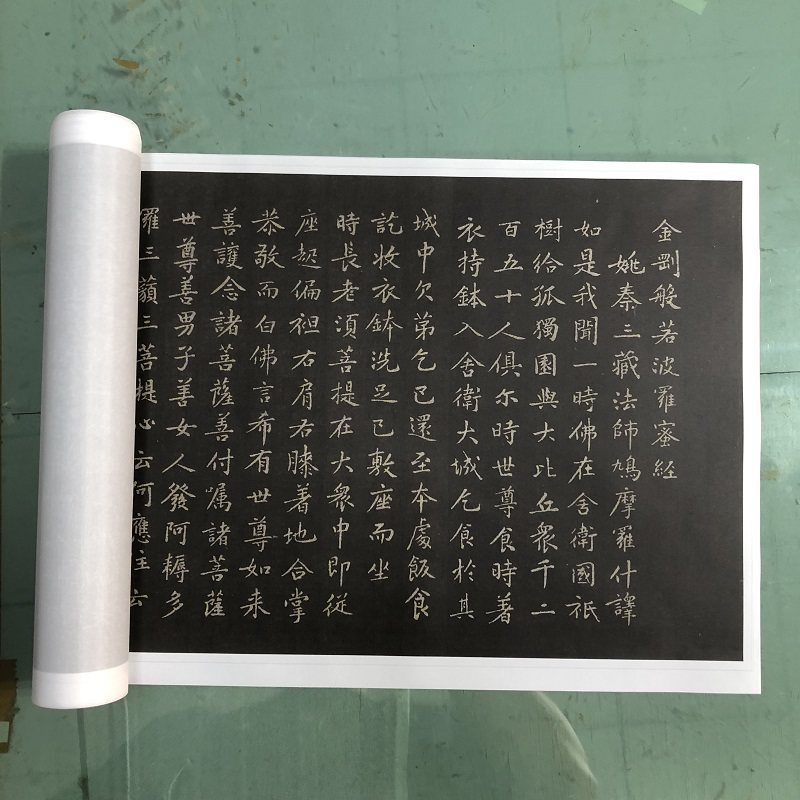 金剛般若波羅蜜經
姚秦三藏法師鳩摩羅什譯
如是我聞一時佛在舍衛國祇
樹給孤獨園與大比丘衆千二
百五十人俱尔時世尊食時著
衣持鉢入舍衛大城乞食於其
城中次第乞已還至本處飯食
訖收衣鉢洗足已敷座而坐
時長老須菩提在大衆中即從
座起偏袒右肩右膝著地合掌
恭敬而白佛言希有世尊如来
善護念諸菩薩善付嘱諸菩薩
世尊善男子善女人發阿耨多
羅三藐三菩提心云何應住云